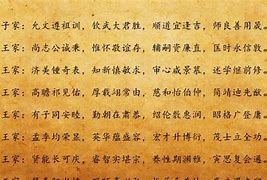 子家：允文遵祖训，钦武大君胜，顺道宜逢吉，师良善用晟。
王家：尚志公诚秉，惟怀敬谊存，辅嗣资廉直，匡时永信
王家：济美钟奇表，知新慎敏求，审心咸景慕，述学继前修。
王家：高瞻祁见祐，厚载翊常由，慈和怡伯仲，简靖迪先猷
王家：有子同安睦，勤朝在肃恭，绍伦敷惠润，昭格广登庸
王家：孟季均荣显，英华蕴盛容，宏才升博衍，茂士立全功
王家：贤能长可庆，睿智实堪宗，养性期渊雅，寅思复会通